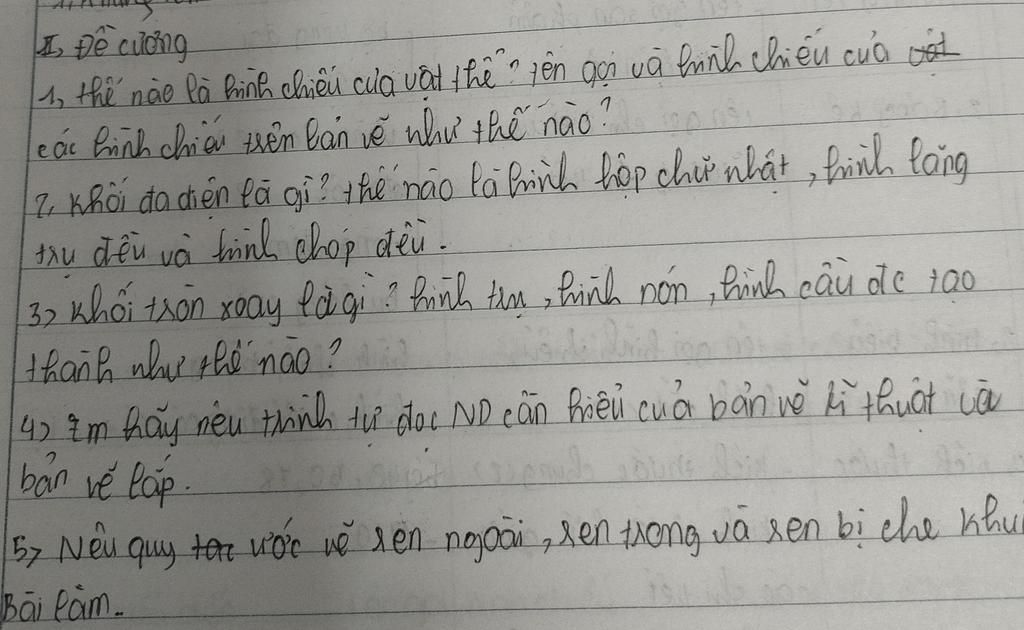 II, Đề cương
1, thế nào là hình chiếu của vật thể? tên gọi và hình chiếu của vật
các hình chiếu trên bản vẽ như thế nào?
2, Khối đa diện là gì? thế nào là hình hộp chữ nhật, hình lăng
trụ đều và hình chóp đều.
3, Khối tròn xoay là gì? hình trụ, hình nón, hình cầu đc tạo
thành như thế nào?
4, Em hãy nêu trình tự đọc ND cần hiểu của bản vẽ kĩ thuật và
bản vẽ lắp.
5, Nêu quy ước vẽ ren ngoài, ren trong và ren bị che khu
Bài làm.